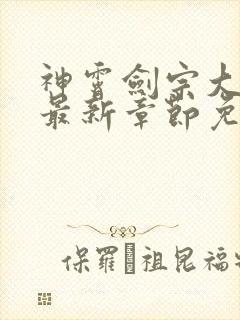 神霄劍宗大
最新章節免
保羅祖昆福